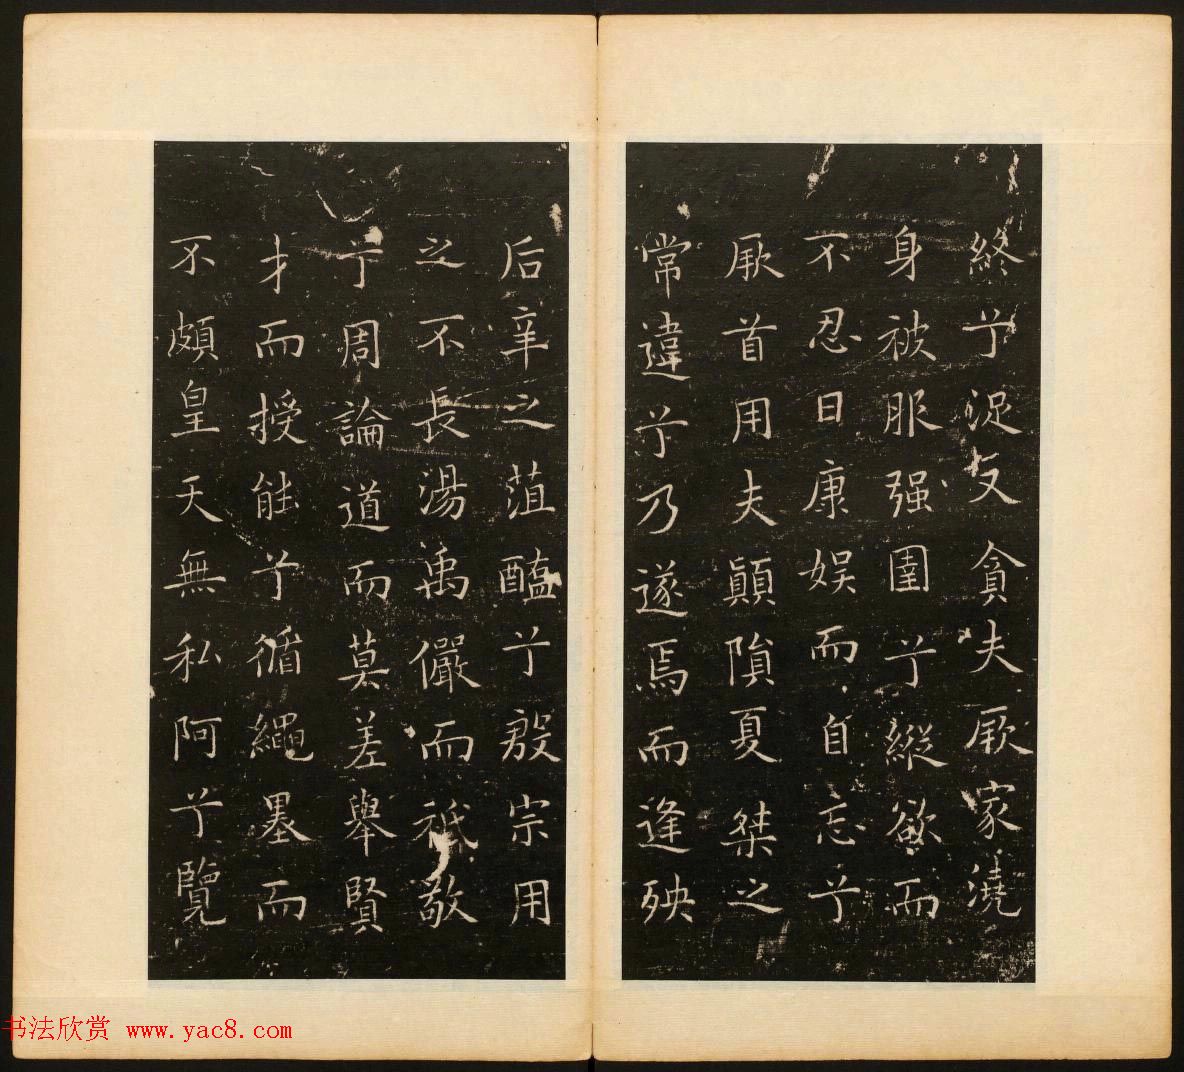 終兮浞又貪夫厥家澆
身被服强圉兮縱欲而
不忍日康娛而自忘兮
厥首用夫顛隕夏桀之
常違兮乃遂焉而逢殃
后辛之菹醢兮殷宗用
之不長湯禹儼而祗敬
兮周論道而莫差舉賢
才而授能兮循繩墨而
不頗皇天無私阿兮覽
书法欣赏 www.yac8.com